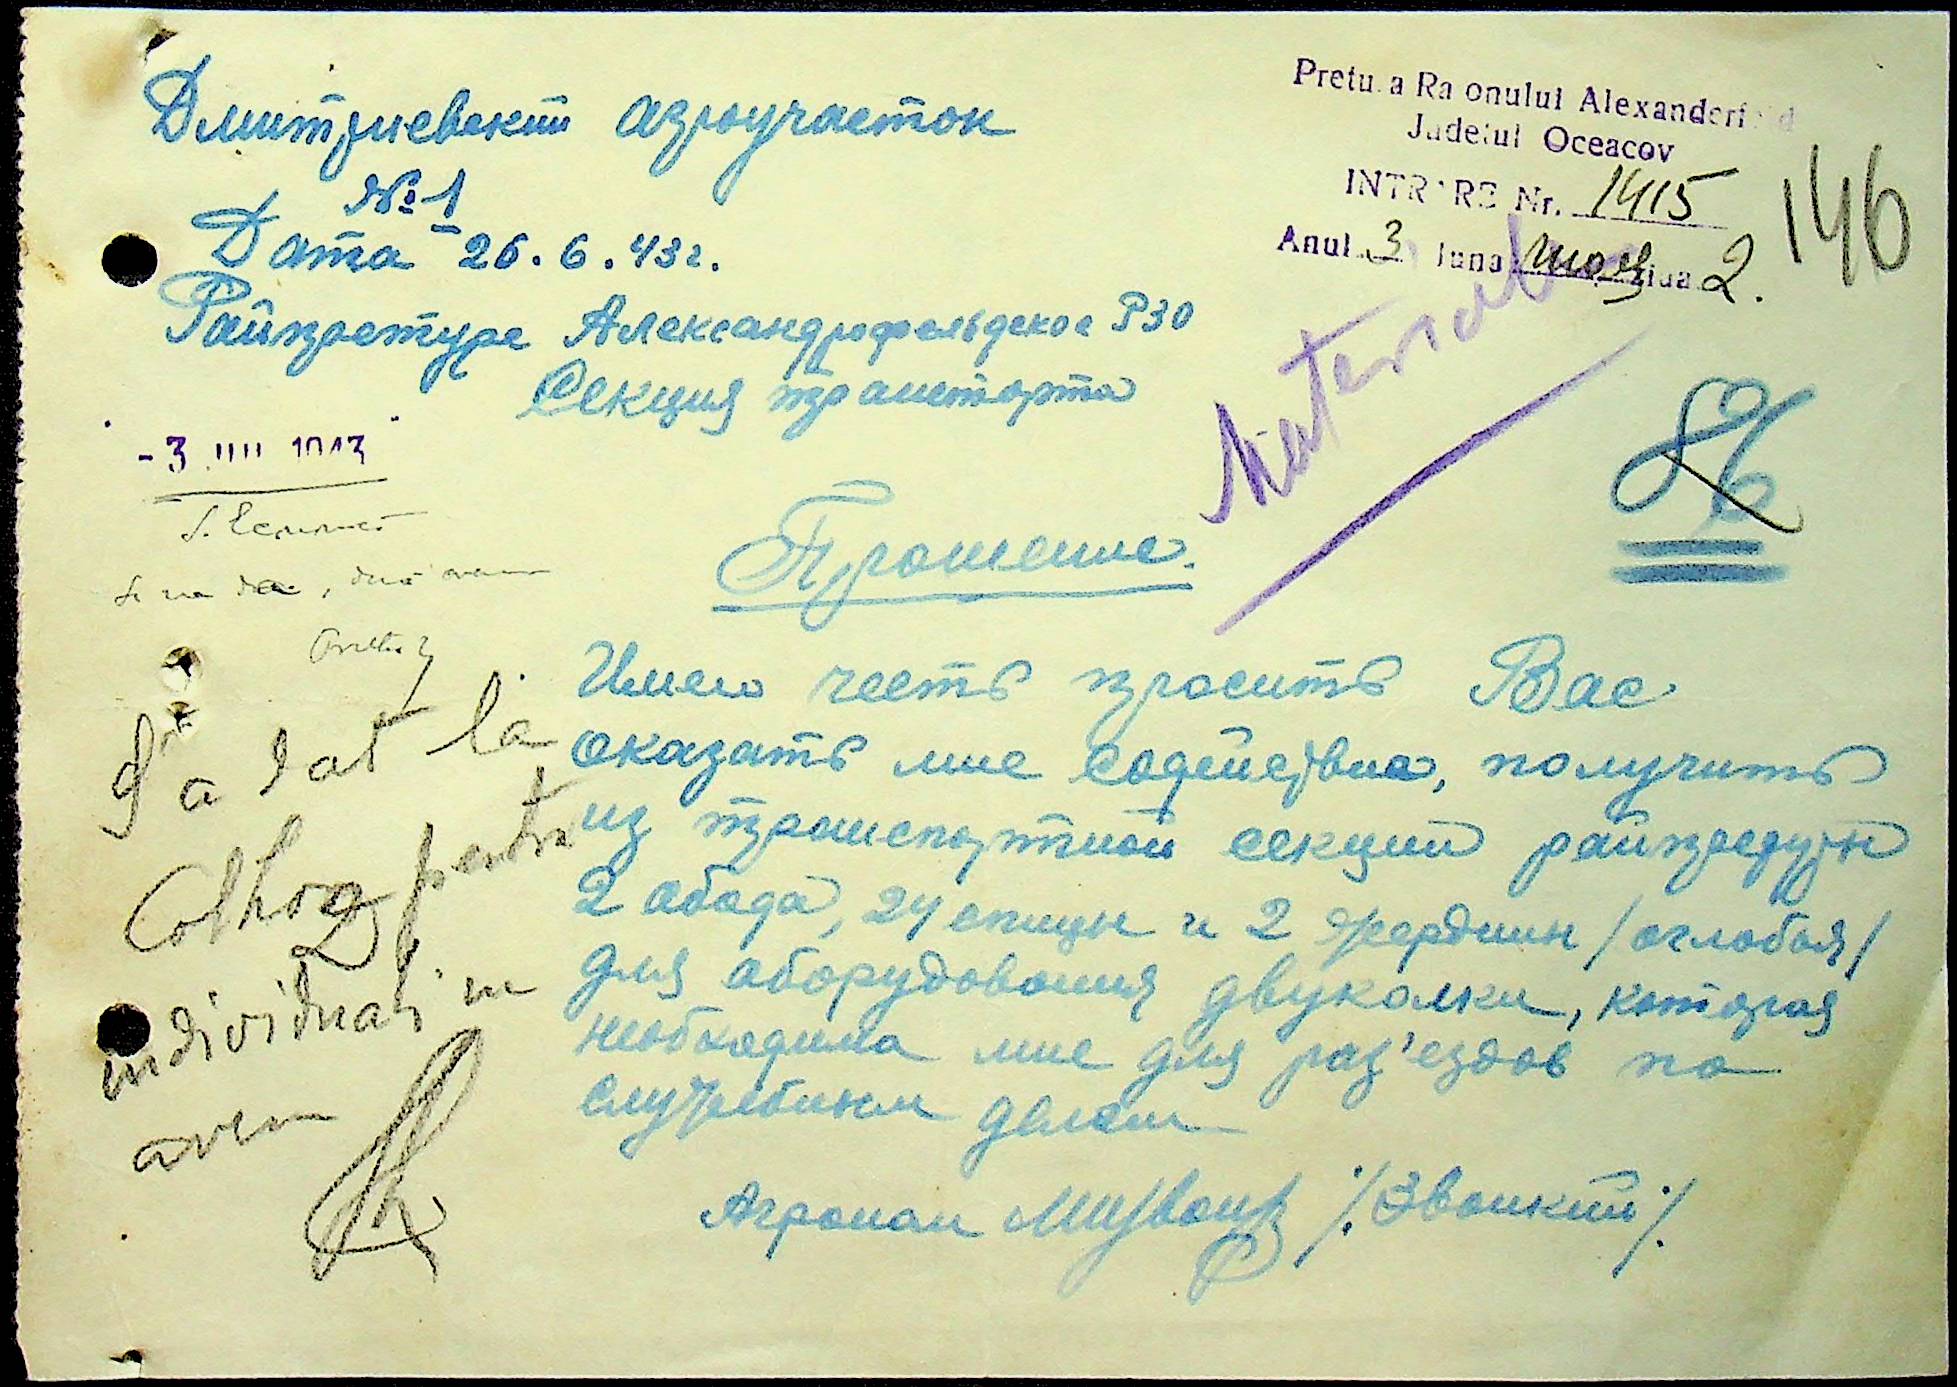 Дмитриевский агроучасток
№ 1
Дата 26.6.43г.
Райпретуре Александрофельдское РЗО
Секция транспорта
Pretu a Ra onului Alexanderf d
Judetul Oceacov
INTR RE Nr. 1415
Anul 3 luna ziua 2.
146
86
-3 1943
Прошение.
Имею честь просить Вас
оказать мне содействие, получить
из транспортной секции райпретуры
2 обода, 24 спицы и 2 жердины /оглобля/
для оборудования двуколки, которая
необходима мне для раз'ездов по
служебным делам
Агроном /Звонкий/.
S'a dat la
Colhoz pentru
individuali nu
avem